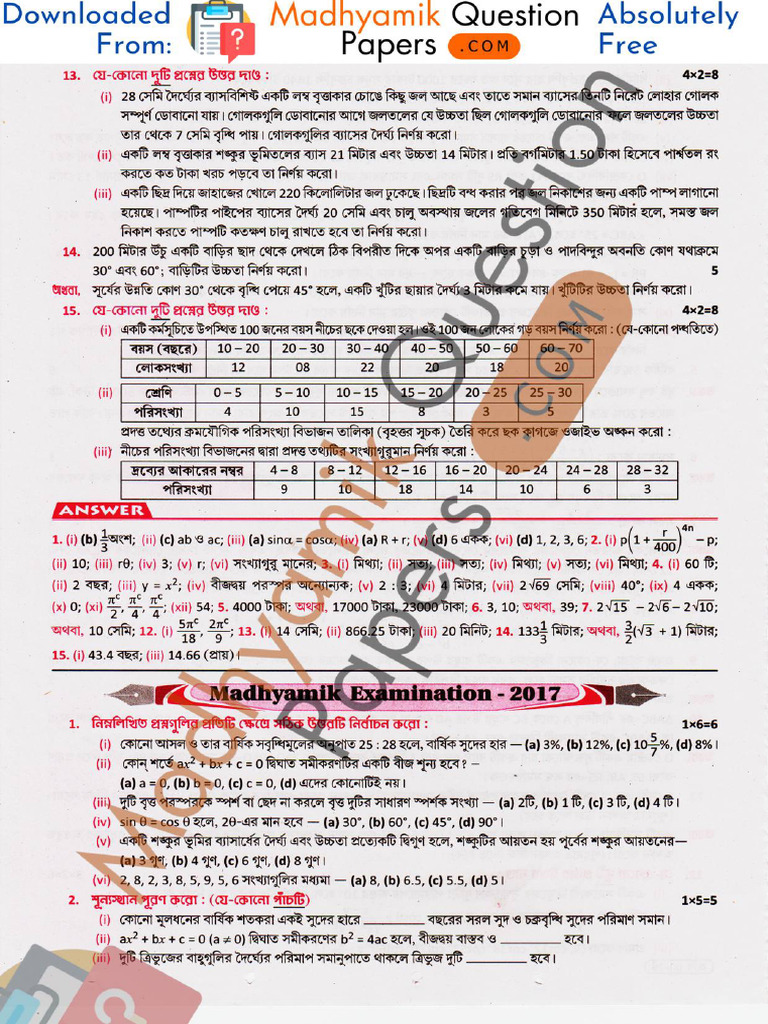 Downloaded From:
Madhyamik Question Papers .COM
Absolutely Free
13. যে-কোনো দুটি প্রশ্নের উত্তর দাও : 4×2=8
(i) 28 সেমি দৈর্ঘ্যের ব্যাসবিশিষ্ট একটি লম্ব বৃত্তাকার চোঙে কিছু জল আছে এবং তাতে সমান ব্যাসের তিনটি নিরেট লোহার গোলক
সম্পূর্ণ ডোবানো যায়। গোলকগুলি ডোবানোর আগে জলতলের যে উচ্চতা ছিল গোলকগুলি ডোবানোর ফলে জলতলের উচ্চতা
তার থেকে 7 সেমি বৃদ্ধি পায়। গোলকগুলির ব্যাসের দৈর্ঘ্য নির্ণয় করো।
(ii) একটি লম্ব বৃত্তাকার শঙ্কুর ভূমিতলের ব্যাস 21 মিটার এবং উচ্চতা 14 মিটার। প্রতি বর্গমিটার 1.50 টাকা হিসেবে পার্শ্বতল রং
করতে কত টাকা খরচ পড়বে তা নির্ণয় করো।
(iii) একটি ছিদ্র দিয়ে জাহাজের খোলে 220 কিলোলিটার জল ঢুকেছে। ছিদ্রটি বন্ধ করার পর জল নিকাশের জন্য একটি পাম্প লাগানো
হয়েছে। পাম্পটির পাইপের ব্যাসের দৈর্ঘ্য 20 সেমি এবং চালু অবস্থায় জলের গতিবেগ মিনিটে 350 মিটার হলে, সমস্ত জল
নিকাশ করতে পাম্পটি কতক্ষণ চালু রাখতে হবে তা নির্ণয় করো।
14. 200 মিটার উঁচু একটি বাড়ির ছাদ থেকে দেখলে ঠিক বিপরীত দিকে অপর একটি বাড়ির চূড়া ও পাদবিন্দুর অবনতি কোণ যথাক্রমে
30° এবং 60°; বাড়িটির উচ্চতা নির্ণয় করো। 5
অথবা, সূর্যের উন্নতি কোণ 30° থেকে বৃদ্ধি পেয়ে 45° হলে, একটি খুঁটির ছায়ার দৈর্ঘ্য 3 মিটার কমে যায়। খুঁটিটির উচ্চতা নির্ণয় করো।
15. যে-কোনো দুটি প্রশ্নের উত্তর দাও : 4×2=8
(i) একটি কর্মসূচিতে উপস্থিত 100 জনের বয়স নীচের ছকে দেওয়া হল। ওই 100 জন লোকের গড় বয়স নির্ণয় করো : (যে-কোনো পদ্ধতিতে)
বয়স (বছরে) 10 – 20 20 – 30 30 – 40 40 – 50 50 – 60 60 – 70
লোকসংখ্যা 12 08 22 20 18 20
(ii) শ্রেণি 0 – 5 5 – 10 10 – 15 15 – 20 20 – 25 25 – 30
পরিসংখ্যা 4 10 15 8 3 5
প্রদত্ত তথ্যের ক্রমযৌগিক পরিসংখ্যা বিভাজন তালিকা (বৃহত্তর সূচক) তৈরি করে ছক কাগজে ওজাইভ অঙ্কন করো :
(iii) নীচের পরিসংখ্যা বিভাজনের দ্বারা প্রদত্ত তথ্যটির সংখ্যাগুরুমান নির্ণয় করো :
দ্রব্যের আকারের নম্বর 4 – 8 8 – 12 12 – 16 16 – 20 20 – 24 24 – 28 28 – 32
পরিসংখ্যা 9 10 18 14 10 6 3
ANSWER
1. (i) (b) 1/3 অংশ; (ii) (c) ab ও ac; (iii) (a) sinα = cosα; (iv) (a) R + r; (v) (d) 6 একক; (vi) (d) 1, 2, 3, 6; 2. (i) p(1 + r/400)^4n – p;
(ii) 10; (iii) rθ; (iv) 3; (v) r; (vi) সংখ্যাগুরু মানের; 3. (i) মিথ্যা; (ii) সত্য; (iii) সত্য; (iv) মিথ্যা; (v) সত্য; (vi) মিথ্যা; 4. (i) 60 টি;
(ii) 2 বছর; (iii) y = x²; (iv) বীজদ্বয় পরস্পর অন্যোন্যক; (v) 2 : 3; (vi) 4 মিটার; (vii) 2√69 সেমি; (viii) 40°; (ix) 4 একক;
(x) 0; (xi) πᶜ/2, πᶜ/4, πᶜ/4; (xii) 54; 5. 4000 টাকা; অথবা, 17000 টাকা, 23000 টাকা; 6. 3, 10; অথবা, 39; 7. 2√15 – 2√6 – 2√10;
অথবা, 10 সেমি; 12. (i) 5πᶜ/18, 2πᶜ/9; 13. (i) 14 সেমি; (ii) 866.25 টাকা; (iii) 20 মিনিট; 14. 133 1/3 মিটার; অথবা, 3/2(√3 + 1) মিটার;
15. (i) 43.4 বছর; (iii) 14.66 (প্রায়)।
Madhyamik Examination - 2017
1. নিম্নলিখিত প্রশ্নগুলির প্রতিটি ক্ষেত্রে সঠিক উত্তরটি নির্বাচন করো : 1×6=6
(i) কোনো আসল ও তার বার্ষিক সবৃদ্ধিমূলের অনুপাত 25 : 28 হলে, বার্ষিক সুদের হার — (a) 3%, (b) 12%, (c) 10 5/7%, (d) 8%।
(ii) কোন্ শর্তে ax² + bx + c = 0 দ্বিঘাত সমীকরণটির একটি বীজ শূন্য হবে? –
(a) a = 0, (b) b = 0, (c) c = 0, (d) এদের কোনোটিই নয়।
(iii) দুটি বৃত্ত পরস্পরকে স্পর্শ বা ছেদ না করলে বৃত্ত দুটির সাধারণ স্পর্শক সংখ্যা — (a) 2টি, (b) 1 টি, (c) 3 টি, (d) 4 টি।
(iv) sin θ = cos θ হলে, 2θ-এর মান হবে — (a) 30°, (b) 60°, (c) 45°, (d) 90°।
(v) একটি শঙ্কুর ভূমির ব্যাসার্ধের দৈর্ঘ্য এবং উচ্চতা প্রত্যেকটি দ্বিগুণ হলে, শঙ্কুটির আয়তন হয় পূর্বের শঙ্কুর আয়তনের—
(a) 3 গুণ, (b) 4 গুণ, (c) 6 গুণ, (d) 8 গুণ।
(vi) 2, 8, 2, 3, 8, 5, 9, 5, 6 সংখ্যাগুলির মধ্যমা — (a) 8, (b) 6.5, (c) 5.5, (d) 5।
2. শূন্যস্থান পূরণ করো : (যে-কোনো পাঁচটি) 1×5=5
(i) কোনো মূলধনের বার্ষিক শতকরা একই সুদের হারে ________ বছরের সরল সুদ ও চক্রবৃদ্ধি সুদের পরিমাণ সমান।
(ii) ax² + bx + c = 0 (a ≠ 0) দ্বিঘাত সমীকরণের b² = 4ac হলে, বীজদ্বয় বাস্তব ও ________ হবে।
(iii) দুটি ত্রিভুজের বাহুগুলির দৈর্ঘ্যের পরিমাপ সমানুপাতে থাকলে ত্রিভুজ দুটি ________ হবে।
Madhyamik Question Papers .COM